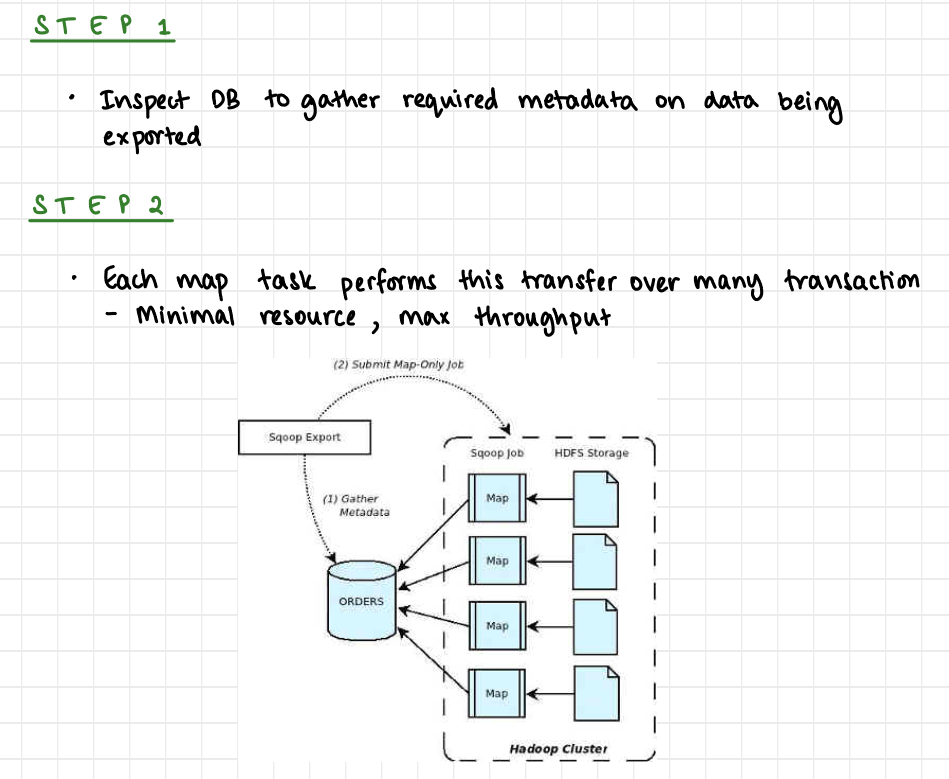 STEP 1
· Inspect DB to gather required metadata on data being
exported
STEP 2
· Each map task performs this transfer over many transaction
- Minimal resource, max throughput
(2) Submit Map-Only Job
Sqoop Export
Sqoop Job
HDFS Storage
(1) Gather
Metadata
Map
Map
ORDERS
Map
Map
Hadoop Cluster